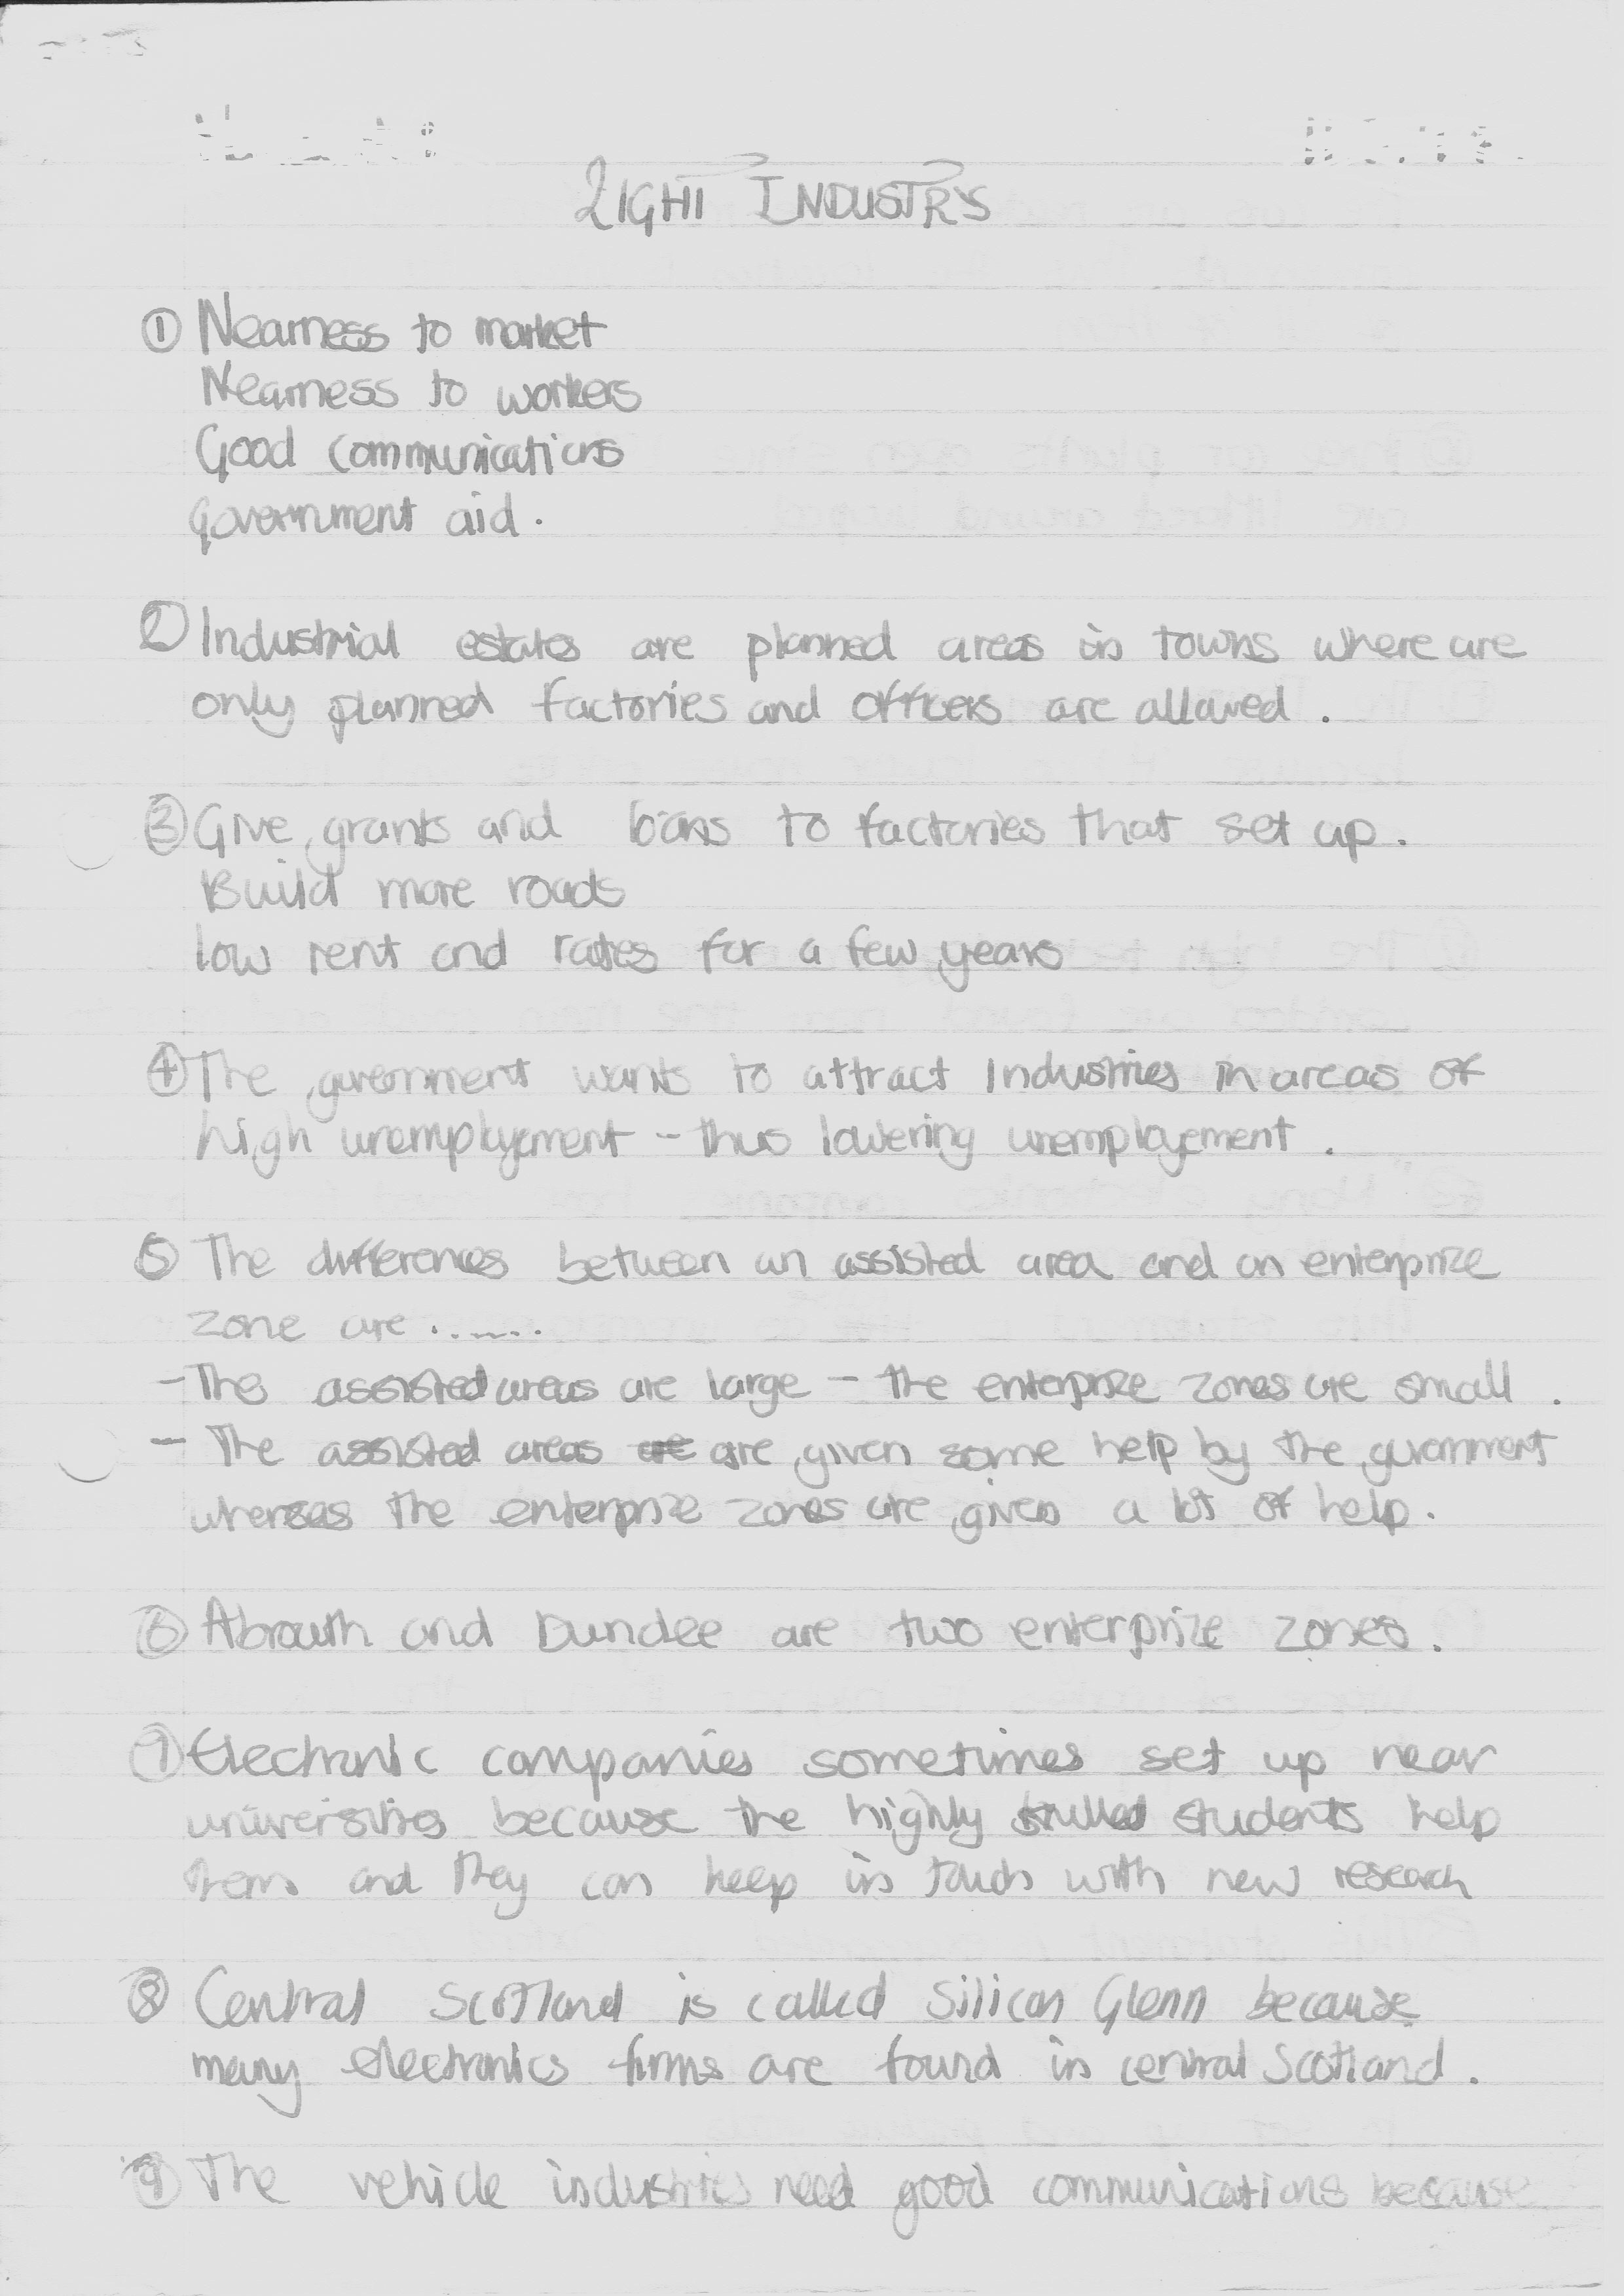 LIGHT INDUSTRY
① Nearness to market
Nearness to workers
Good communications
Government aid.
② Industrial estates are planned areas in towns where are
only planned factories and officers are allowed.
③ Give grants and loans to factories that set up.
Build more roads
low rent and rates for a few years
④ The government wants to attract Industries in areas of
high unemployement - thus lowering unemployement.
⑤ The differences between an assisted area and an enterprize
zone are .......
- The assisted areas are large - the enterprize zones are small.
- The assisted areas are are given some help by the government
whereas the enterprize zones are given a lot of help.
⑥ Abroath and Dundee are two enterprize zones.
⑦ Electronic companies sometimes set up near
universities because the highly skilled students help
them and they can keep in touch with new research
⑧ Central Scotland is called Silicon Glenn because
many electronics firms are found in central Scotland.
⑨ The vehicle industries need good communications because